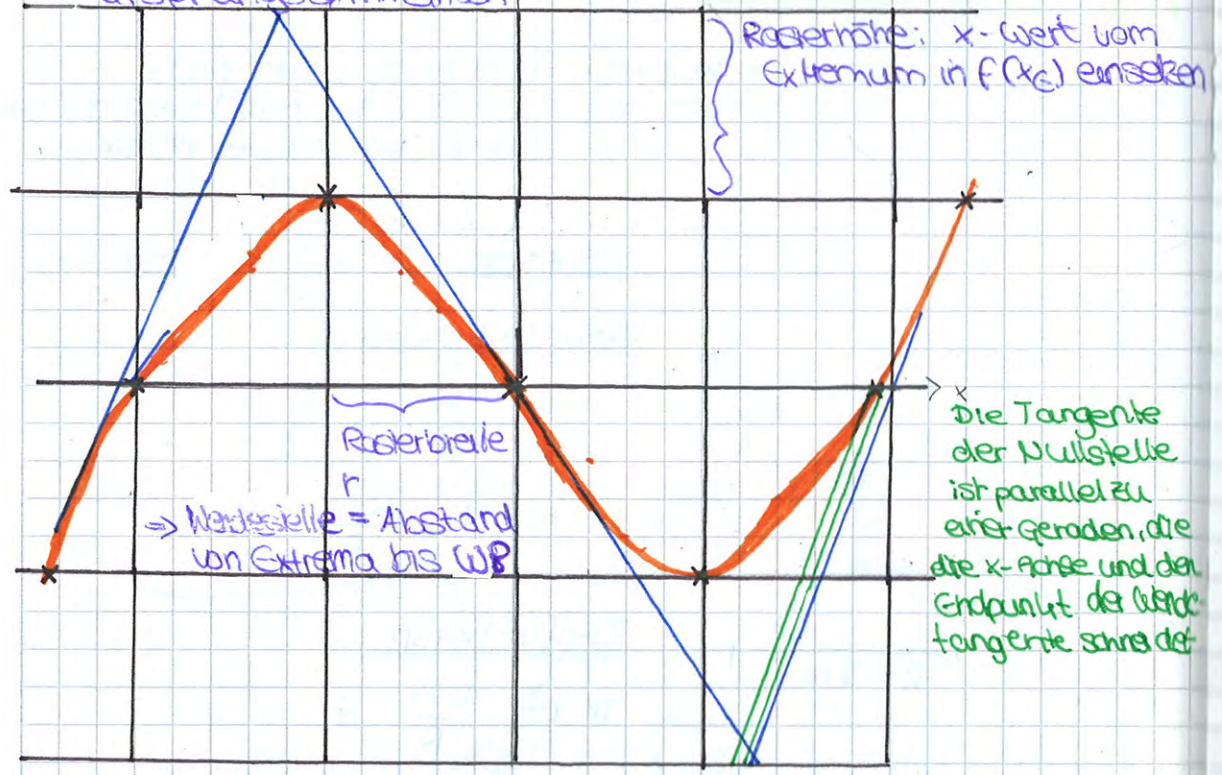 Rasterhöhe: x-Wert vom
Extremum in f(x_E) einsetzen
x
Rasterbreite
r
⇒ Wendestelle = Abstand
von Extrema bis WP
Die Tangente
der Nullstelle
ist parallel zu
einer Geraden, die
die x-Achse und den
Endpunkt der Wende
tangente schneidet